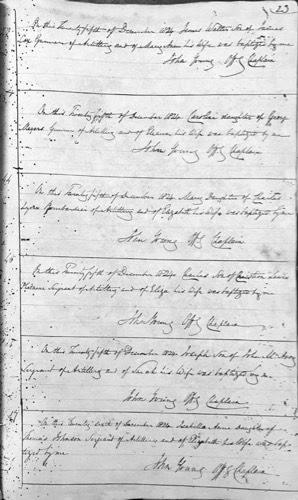 23
On this Twenty fifth of December 1824 James Walter Son of James
Gunner of Artillery and of Mary Ann his Wife was baptized by me
John Young Offg Chaplain
On this Twenty fifth of December 1824 Caroline daughter of George
Meyers Gunner of Artillery and of Eleanor his Wife was baptized by me
John Young Offg Chaplain
On this Twenty fifth of December 1824 Mary Daughter of Charles
Bombardier of Artillery and of Elizabeth his Wife was baptized by me
John Young Offg Chaplain
On this Twenty fifth of December 1824 Son of
Serjeant of Artillery and of Eliza his Wife was baptized by me
John Young Offg Chaplain
On this Twenty fifth of December 1824 Joseph Son of John
Serjeant of Artillery and of Sarah his Wife was baptized by me
John Young Offg Chaplain
On this Twenty sixth of December 1824 Isabella Anne daughter of
Johnson Serjeant of Artillery and of Elizabeth his Wife was bap-
tized by me
John Young Offg Chaplain